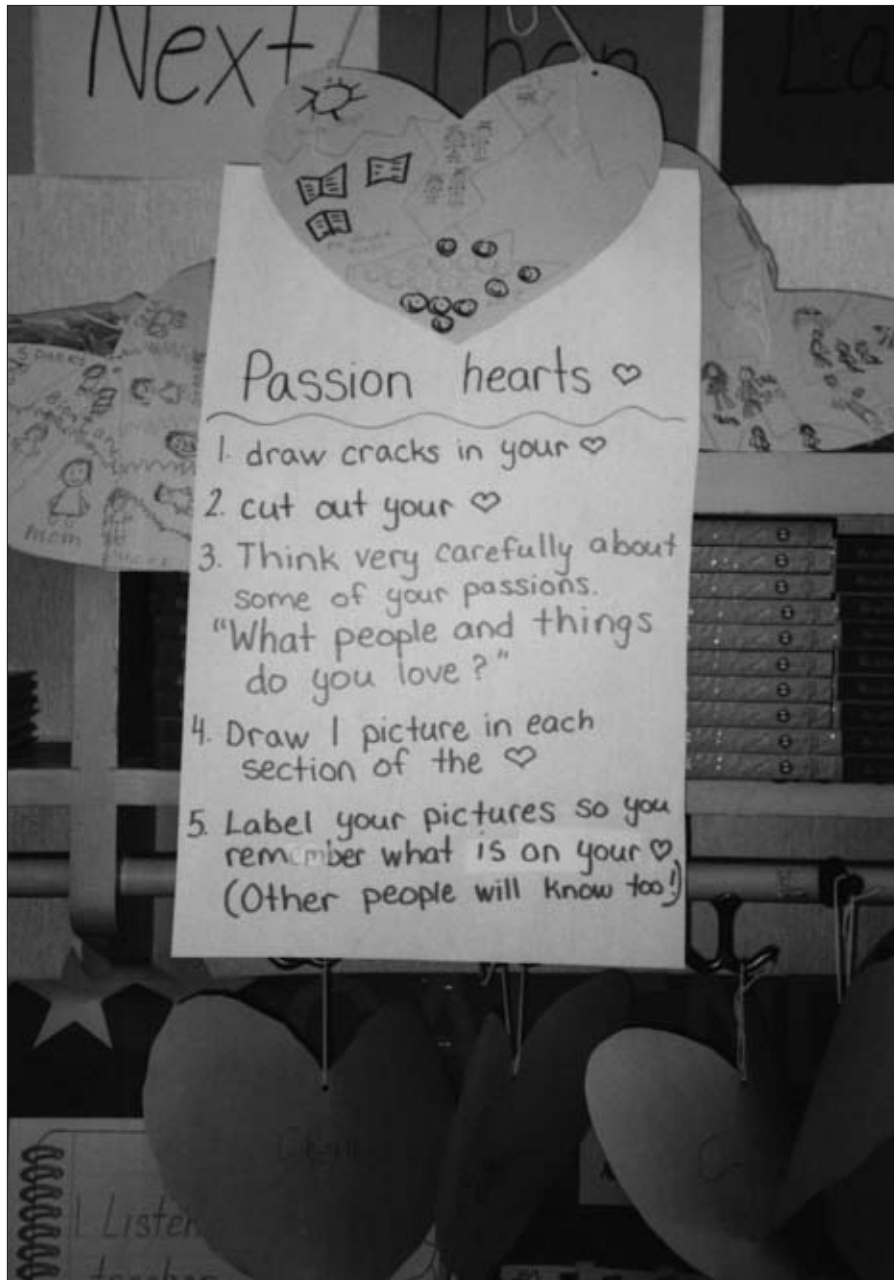 Next Then La
Passion hearts ♡
1. draw cracks in your ♡
2. cut out your ♡
3. Think very carefully about
some of your passions.
"What people and things
do you love?"
4. Draw 1 picture in each
section of the ♡
5. Label your pictures so you
remember what is on your ♡
(Other people will know too!)
mom
Listen
teacher